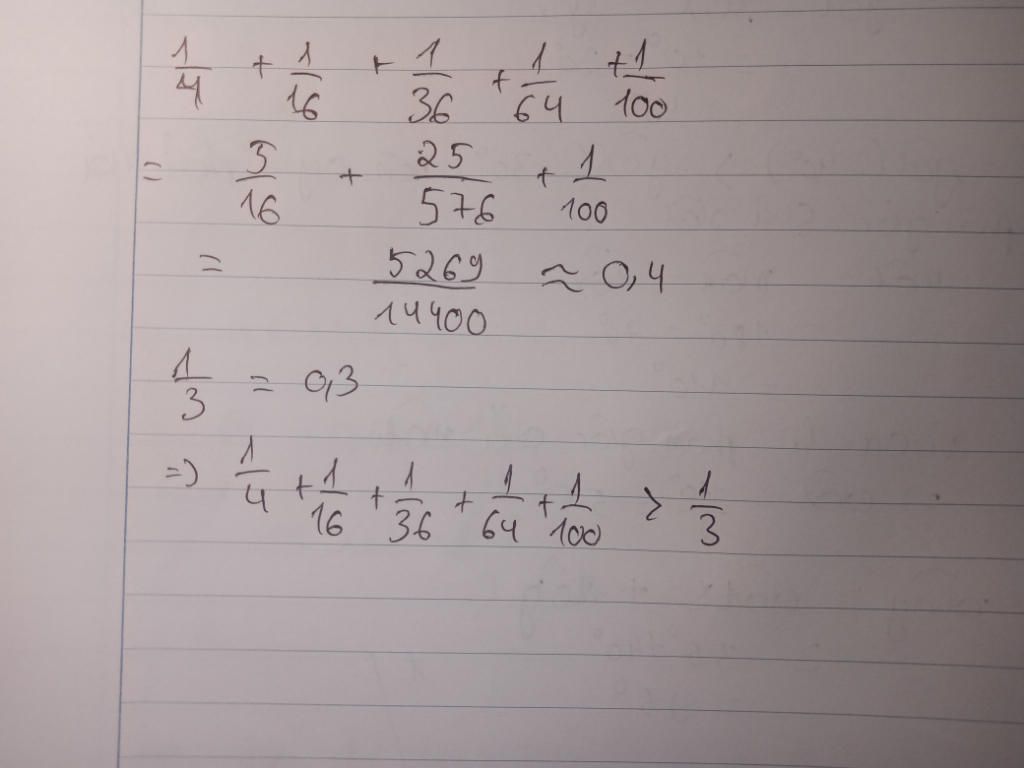 1/4 + 1/16 + 1/36 + 1/64 + 1/100
= 5/16 + 25/576 + 1/100
= 5269/14400 ≈ 0,4
1/3 = 0,3
=> 1/4 + 1/16 + 1/36 + 1/64 + 1/100 > 1/3